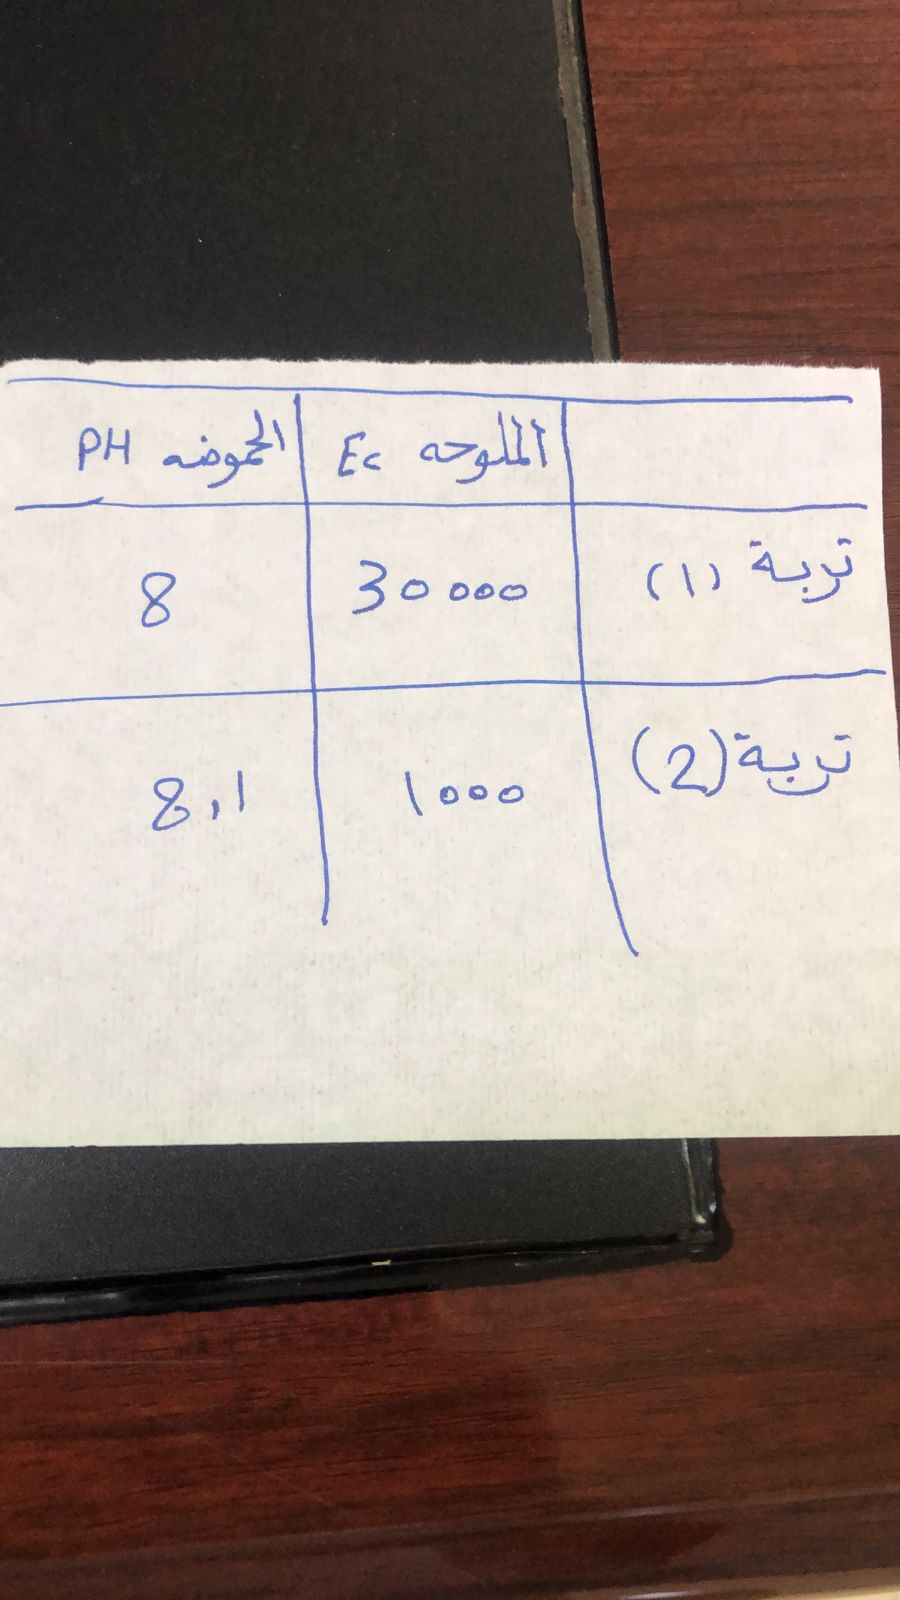 الملوحه Ec الحموضه PH
تربة (1) 30000 8
تربة (2) 1000 8,1